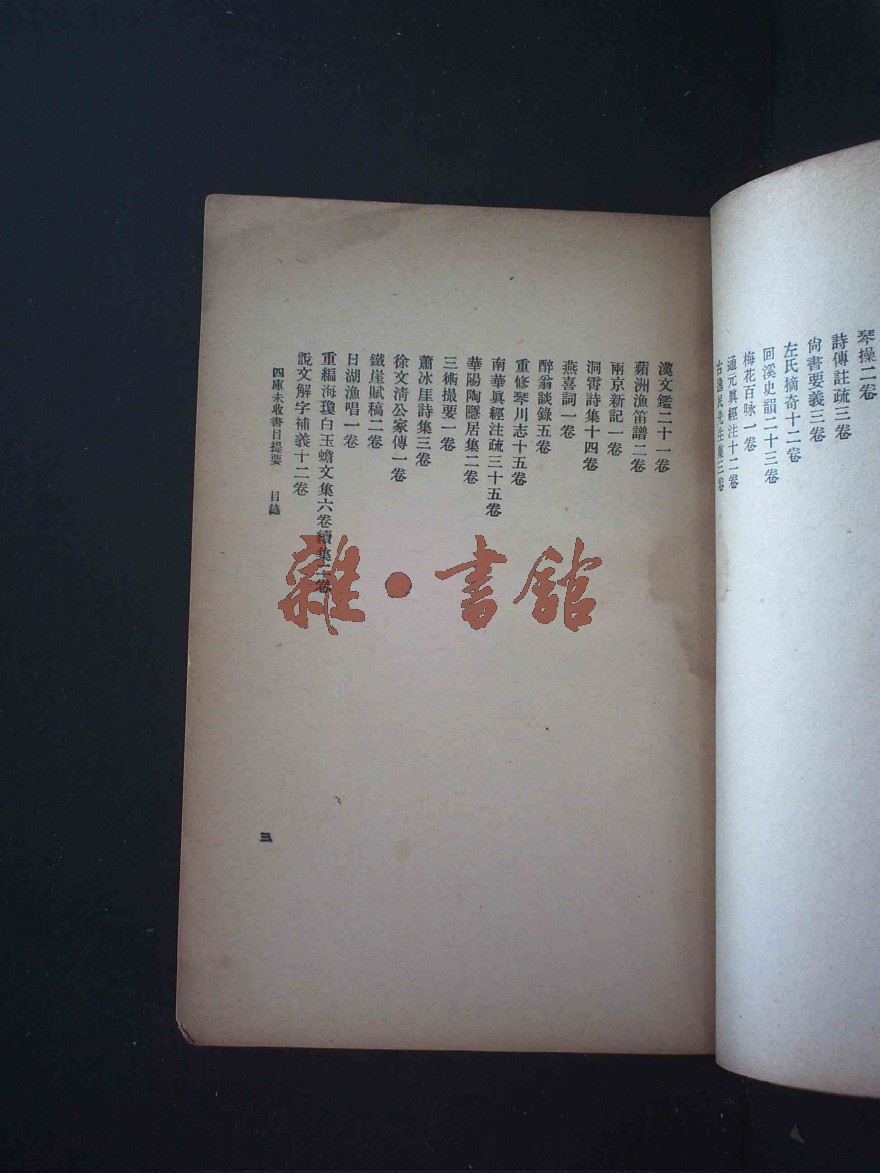 琴操二卷
詩傳註疏三卷
尙書要義三卷
左氏摘奇十二卷
回溪史韻二十三卷
梅花百咏一卷
通元眞經注十二卷
古逸民先生集三卷
漢文鑑二十一卷
蘋洲漁笛譜二卷
兩京新記一卷
洞霄詩集十四卷
燕喜詞一卷
醉翁談錄五卷
重修琴川志十五卷
南華眞經注疏三十五卷
華陽陶隱居集二卷
三術撮要一卷
蕭冰厓詩集三卷
徐文淸公家傳一卷
鐵崖賦稿二卷
日湖漁唱一卷
重編海瓊白玉蟾文集六卷續集二卷
說文解字補義十二卷
四庫未收書目提要 目錄
三
雜·書館